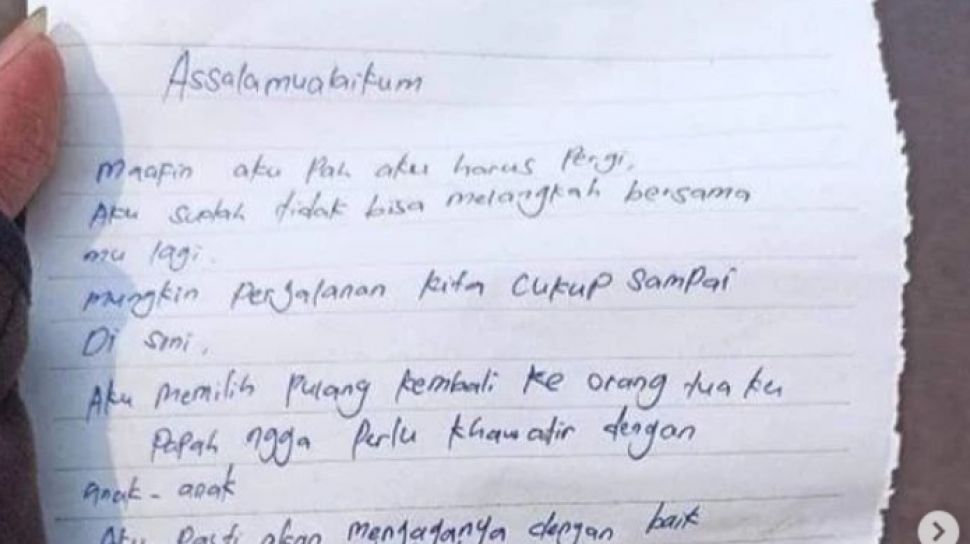 Assalamualaikum
Maafin aku Pah aku harus Pergi,
Aku sudah tidak bisa melangkah bersama
mu lagi.
mungkin Perjalanan kita cukup sampai
Di sini,
Aku memilih pulang kembali ke orang tua ku
papah ngga perlu khawatir dengan
anak - anak
Aku Pasti akan menjaganya dengan baik